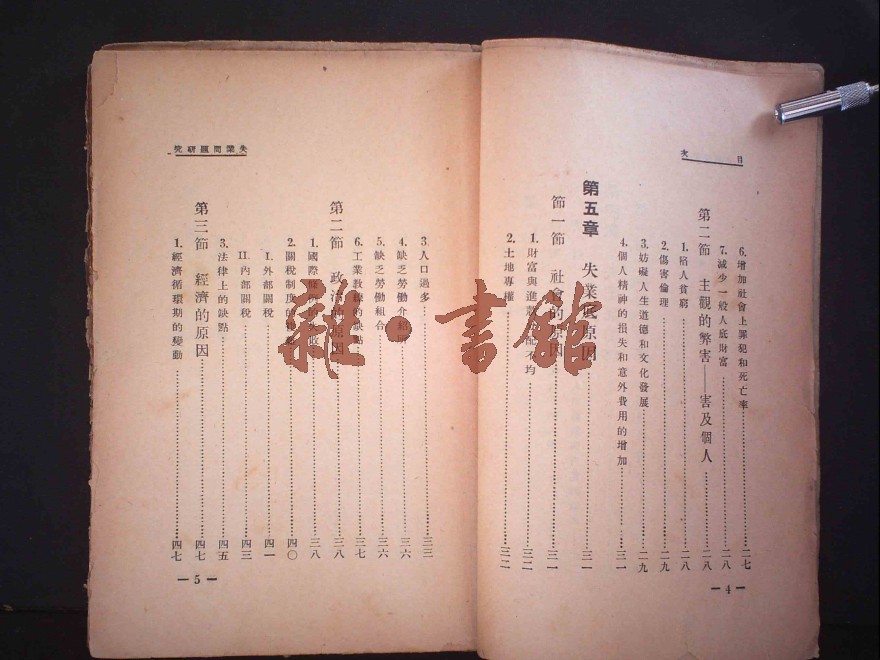 目次
6. 增加社會上罪犯和死亡率……二七
7. 減少一般人底財富……二八
第二節 主觀的弊害——害及個人……二八
1. 陷人貧窮……二八
2. 傷害倫理……二九
3. 妨礙人生道德和文化發展……二九
4. 個人精神的損失和意外費用的增加……三一
第五章 失業底原因……三一
節一節 社會的原因……三一
1. 財富與進款分配不均……三二
2. 土地專權……三二
—4—
失業問題研究
3. 人口過多……三三
4. 缺乏勞働介紹所……三六
5. 缺乏勞働組合……三六
6. 工業教練的缺點……三七
第二節 政治的原因……三八
1. 國際條約的失敗……三八
2. 關稅制度的……四〇
I. 外部關稅……四一
II. 內部關稅……四三
3. 法律上的缺點……四五
第三節 經濟的原因……四七
1. 經濟循環期的變動……四七
—5—
雜·書館